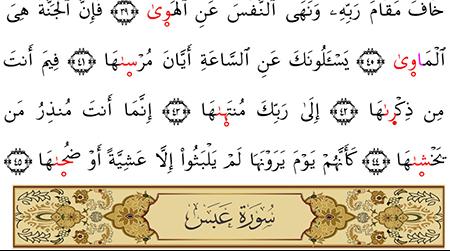 خَافَ مَقَامَ رَبِّهِۦ وَنَهَى ٱلنَّفْسَ عَنِ ٱلْهَوَىٰ ﴿٣٩﴾ فَإِنَّ ٱلْجَنَّةَ هِىَ
ٱلْمَأْوَىٰ ﴿٤٠﴾ يَسْـَٔلُونَكَ عَنِ ٱلسَّاعَةِ أَيَّانَ مُرْسَىٰهَا ﴿٤١﴾ فِيمَ أَنتَ
مِن ذِكْرَىٰهَا ﴿٤٢﴾ إِلَىٰ رَبِّكَ مُنتَهَىٰهَا ﴿٤٣﴾ إِنَّمَا أَنتَ مُنذِرُ مَن
يَخْشَىٰهَا ﴿٤٤﴾ كَأَنَّهُمْ يَوْمَ يَرَوْنَهَا لَمْ يَلْبَثُوٓا۟ إِلَّا عَشِيَّةً أَوْ ضُحَىٰهَا ﴿٤٥﴾
سُورَةُ عَبَسَ